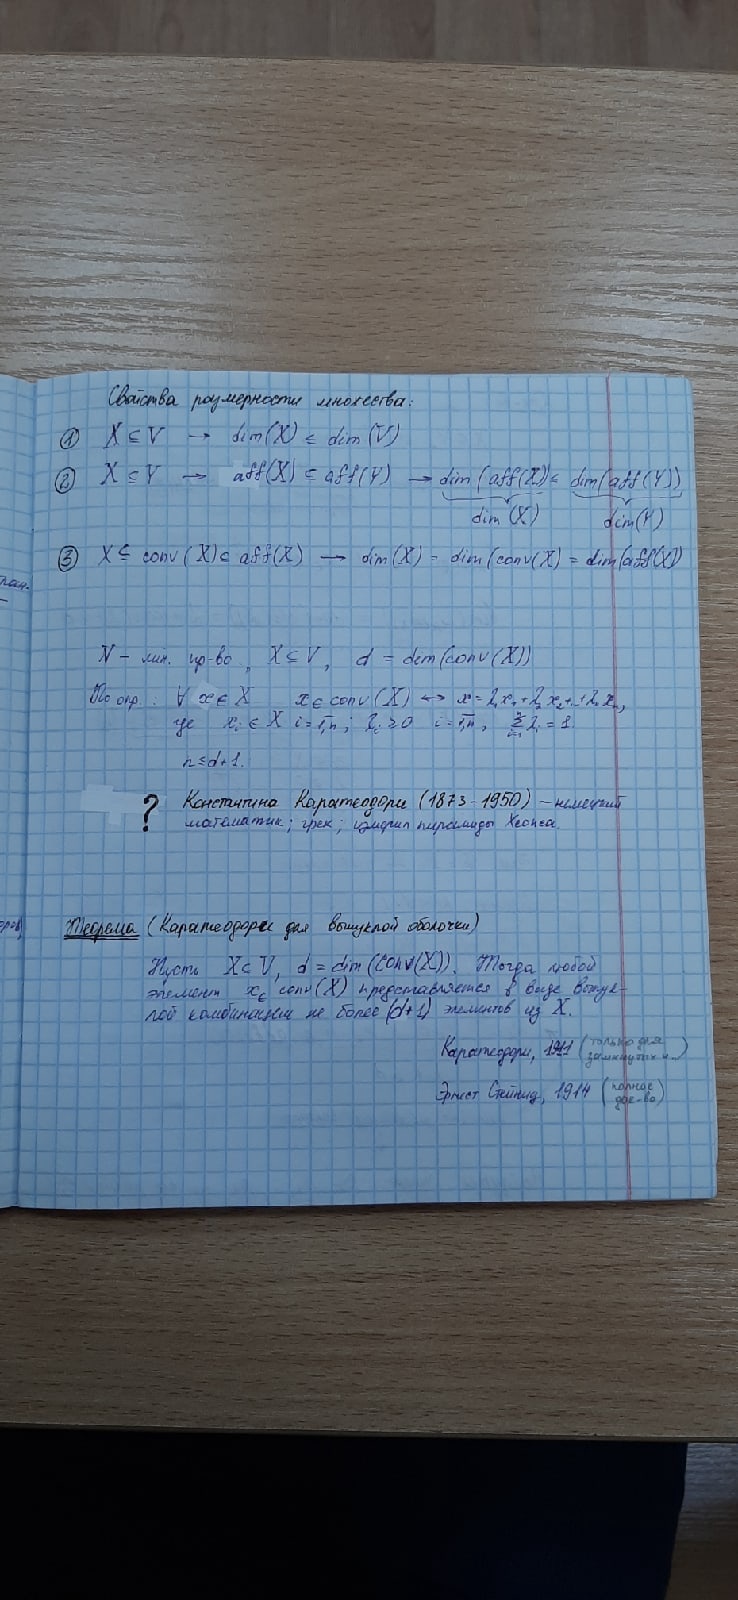 Свойства размерности множества:
① X ⊆ V → dim(X) ≤ dim(V)
② X ⊆ Y → aff(X) ⊆ aff(Y) → dim(aff(X)) ≤ dim(aff(Y))
dim(X) dim(Y)
③ X ⊆ conv(X) ⊂ aff(X) → dim(X) = dim(conv(X) = dim(aff(X))
V – лин. пр-во, X ⊆ V, d = dim(conv(X))
По опр.: ∀ x ∈ X x ∈ conv(X) ↔ x = λ₁x₁ + λ₂x₂ + ... + λₙxₙ,
где xᵢ ∈ X i = 1,n; λᵢ ≥ 0 i = 1,n, Σλᵢ = 1
n ≤ d+1.
? Константина Каратеодори (1873 - 1950) – немецкий
математик; грек; измерил пирамиды Хеопса.
Теорема (Каратеодори для выпуклой оболочки)
Пусть X ⊂ V, d = dim(conv(X)). Тогда любой
элемент x ∈ conv(X) представляется в виде выпук-
лой комбинации не более (d+1) элементов из X.
Каратеодори, 1911 (только для
замкнутых
Эрнест Стейниц, 1914 (полное
док-во)
ран.